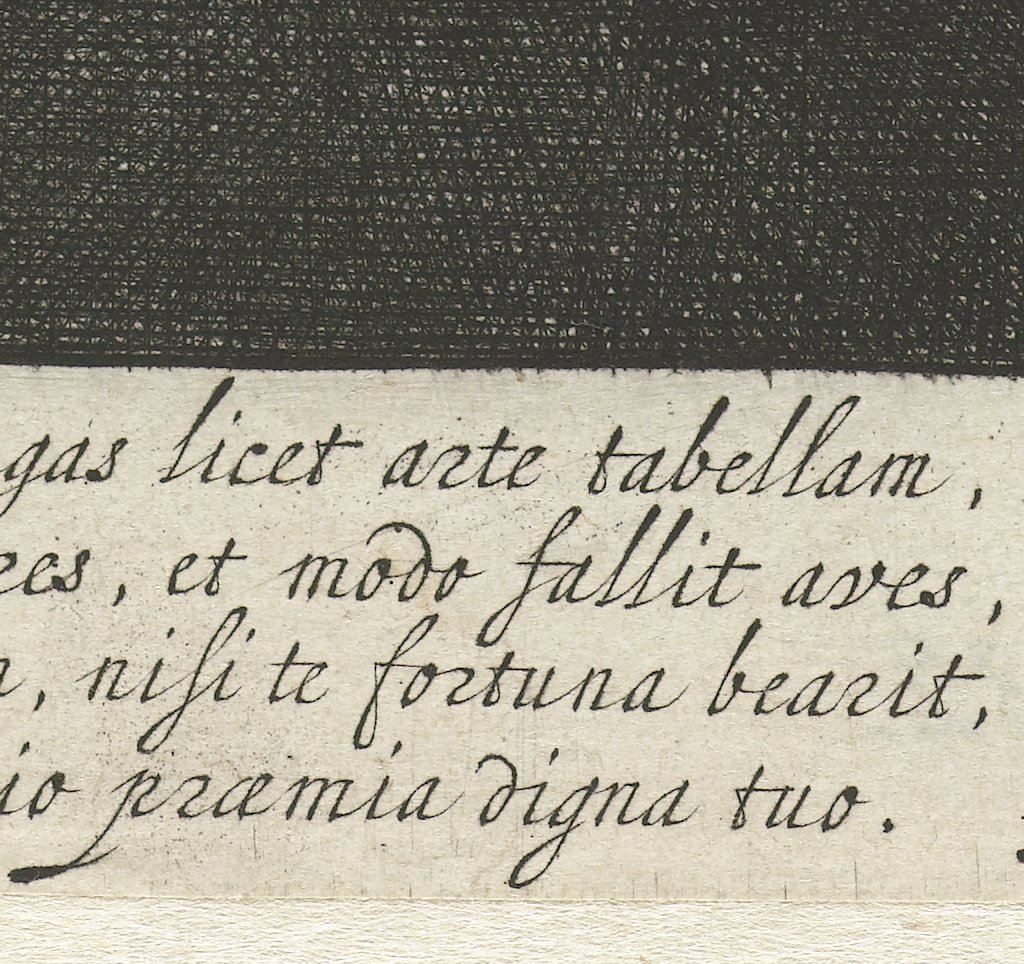 gas licet arte tabellam,
ees, et modo fallit aves,
, niſi te fortuna bearit,
io præmia digna tuo.